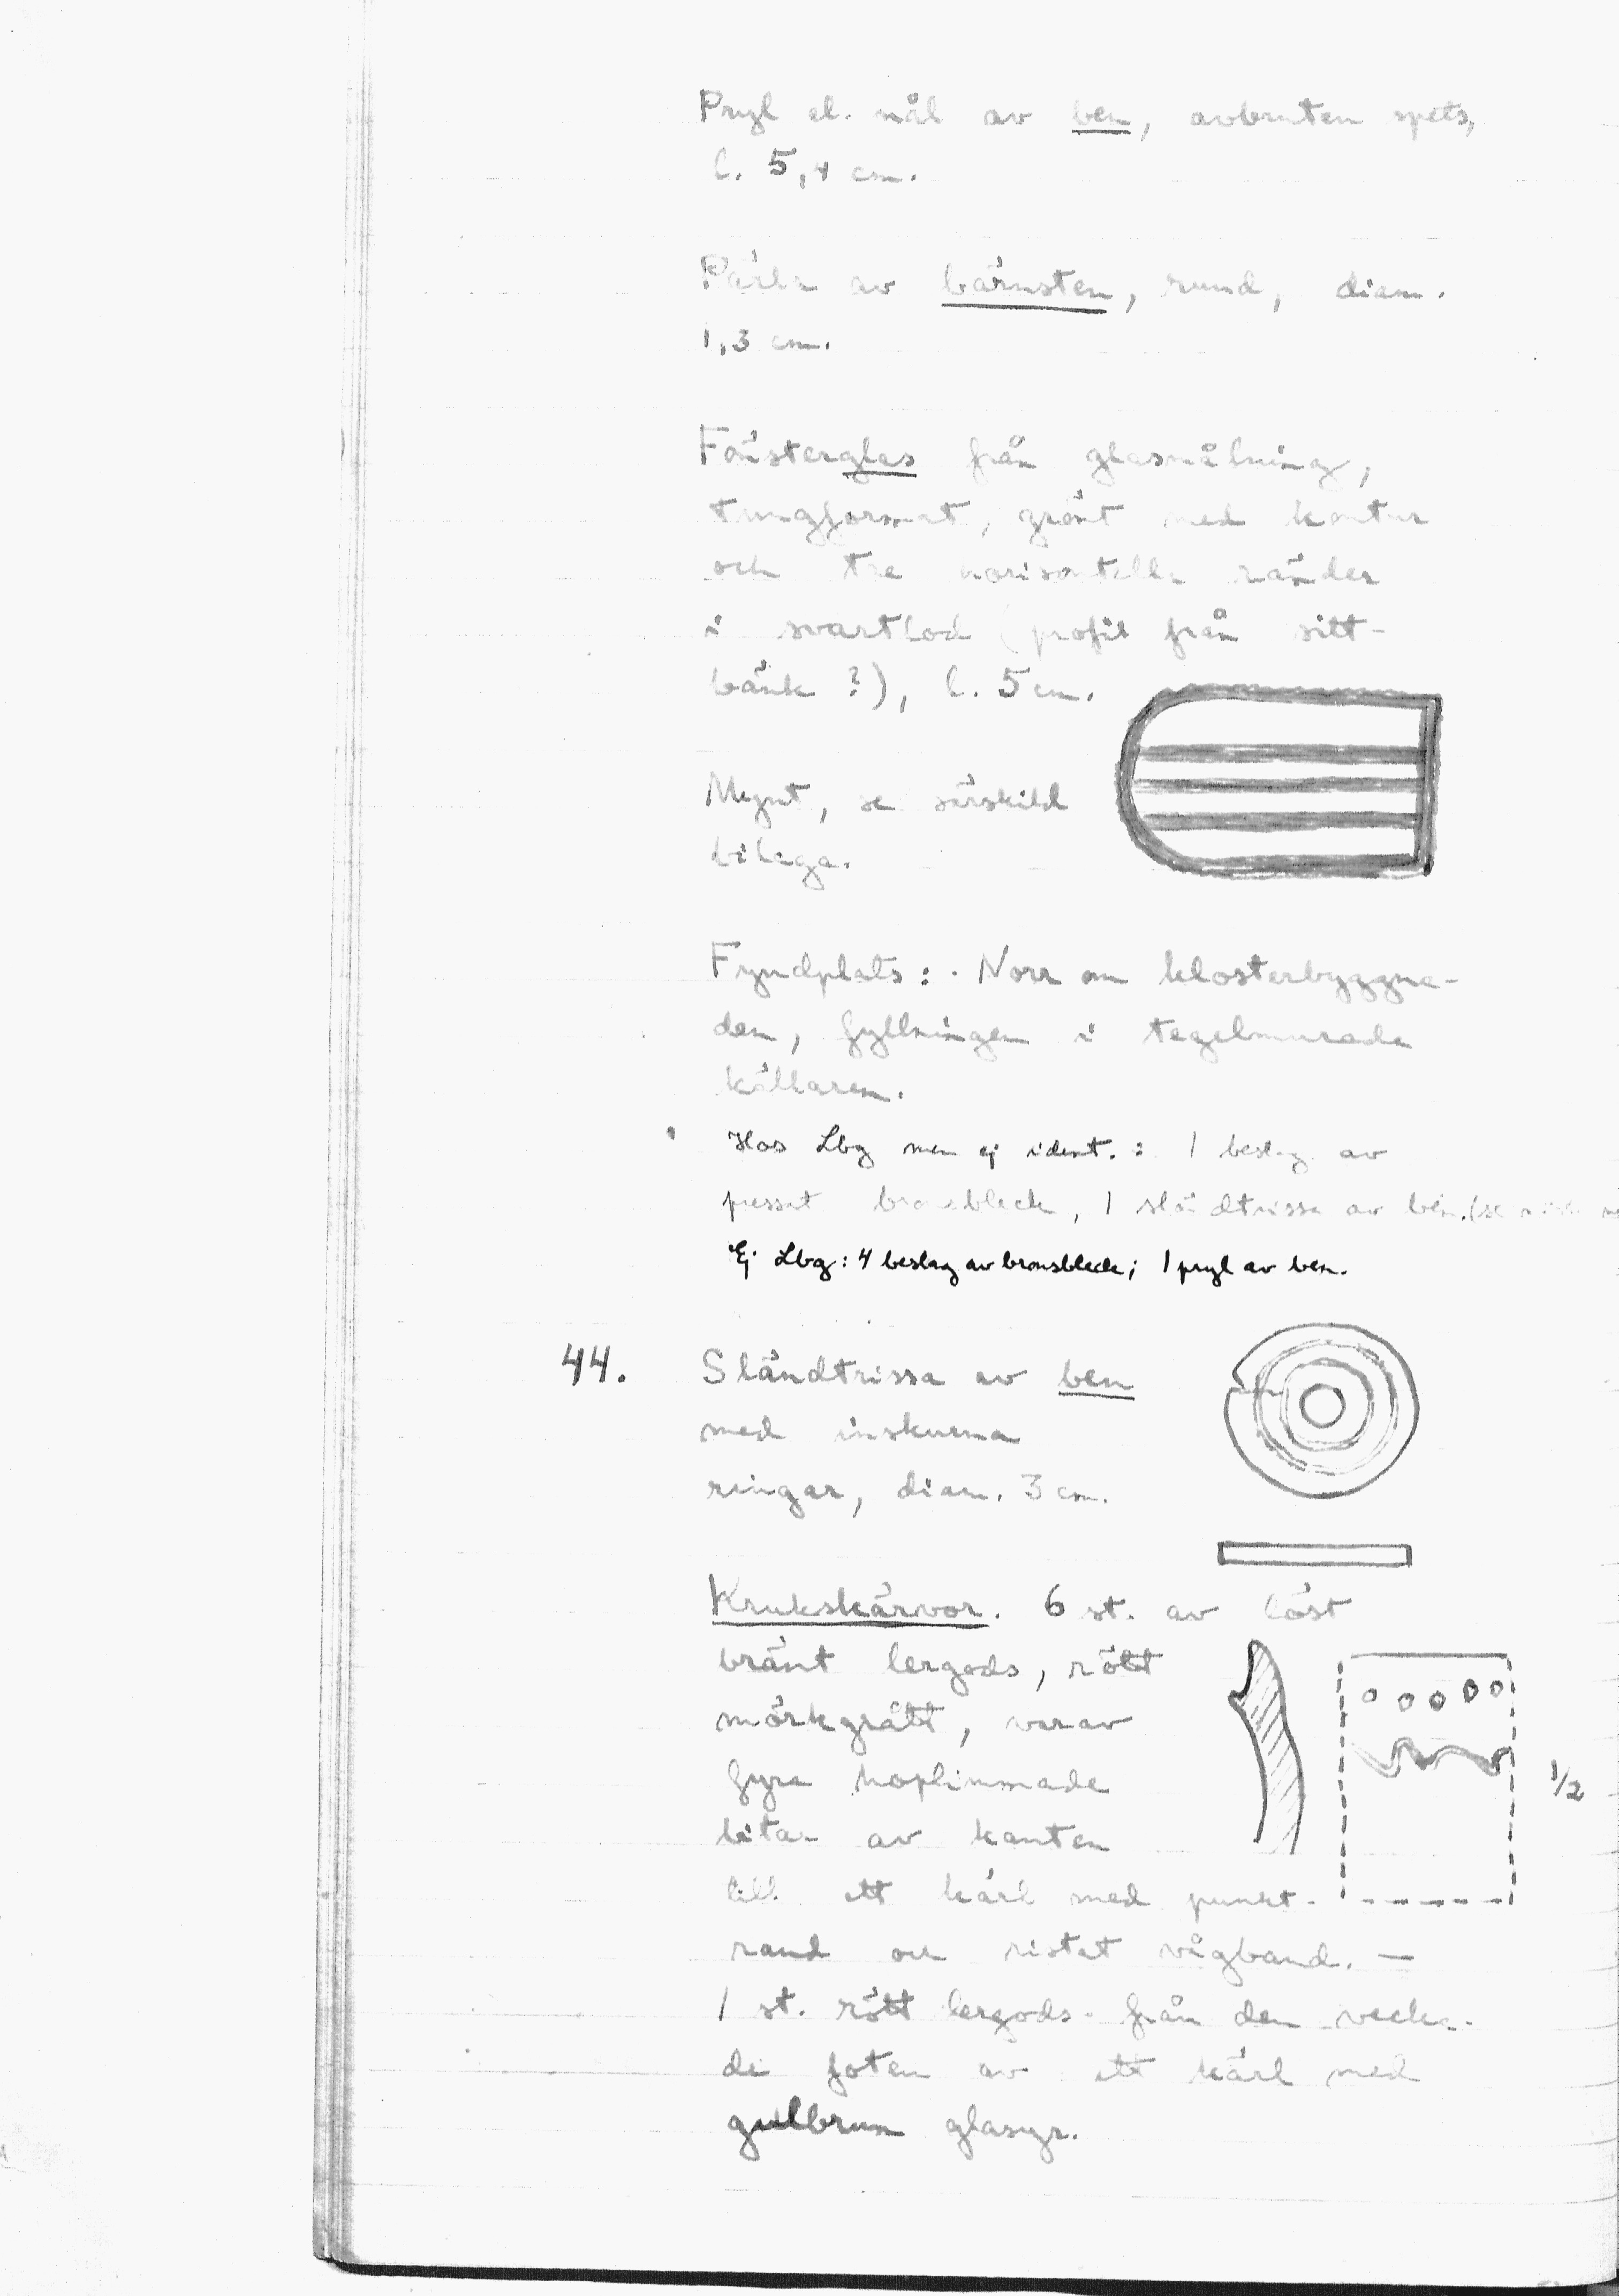 Pryl el. nål av ben, avbruten spets,
l. 5,4 cm.
Pärla av bärnsten, rund, diam.
1,3 cm.
Fönsterglas från glasmålning,
tungformat, grönt med kontur
och tre horisontella ränder
i svartlod (profil från sitt-
bänk ?), l. 5 cm.
Mynt, se särskild
bilaga.
Fyndplats: Norr om klosterbyggna-
den, fyllningen i tegelmurade
källaren.
Hos Lbg men ej ident. : 1 beslag av
pressat bronsbleck, 1 sländtrissa av ben. (se
Ej Lbg: 4 beslag av bronsbleck; 1 pryl av ben.
44. Sländtrissa av ben
med inskurna
ringar, diam. 3 cm.
Krukskärvor. 6 st. av löst
bränt lergods, rött
mörkgrått, varav
fyra hoplimmade
bitar av kanten
till ett kärl med punkt-
rand och ristat vågband. —
1/2
1 st. rött lergods från den vecka-
de foten av ett kärl med
gulbrun glasyr.